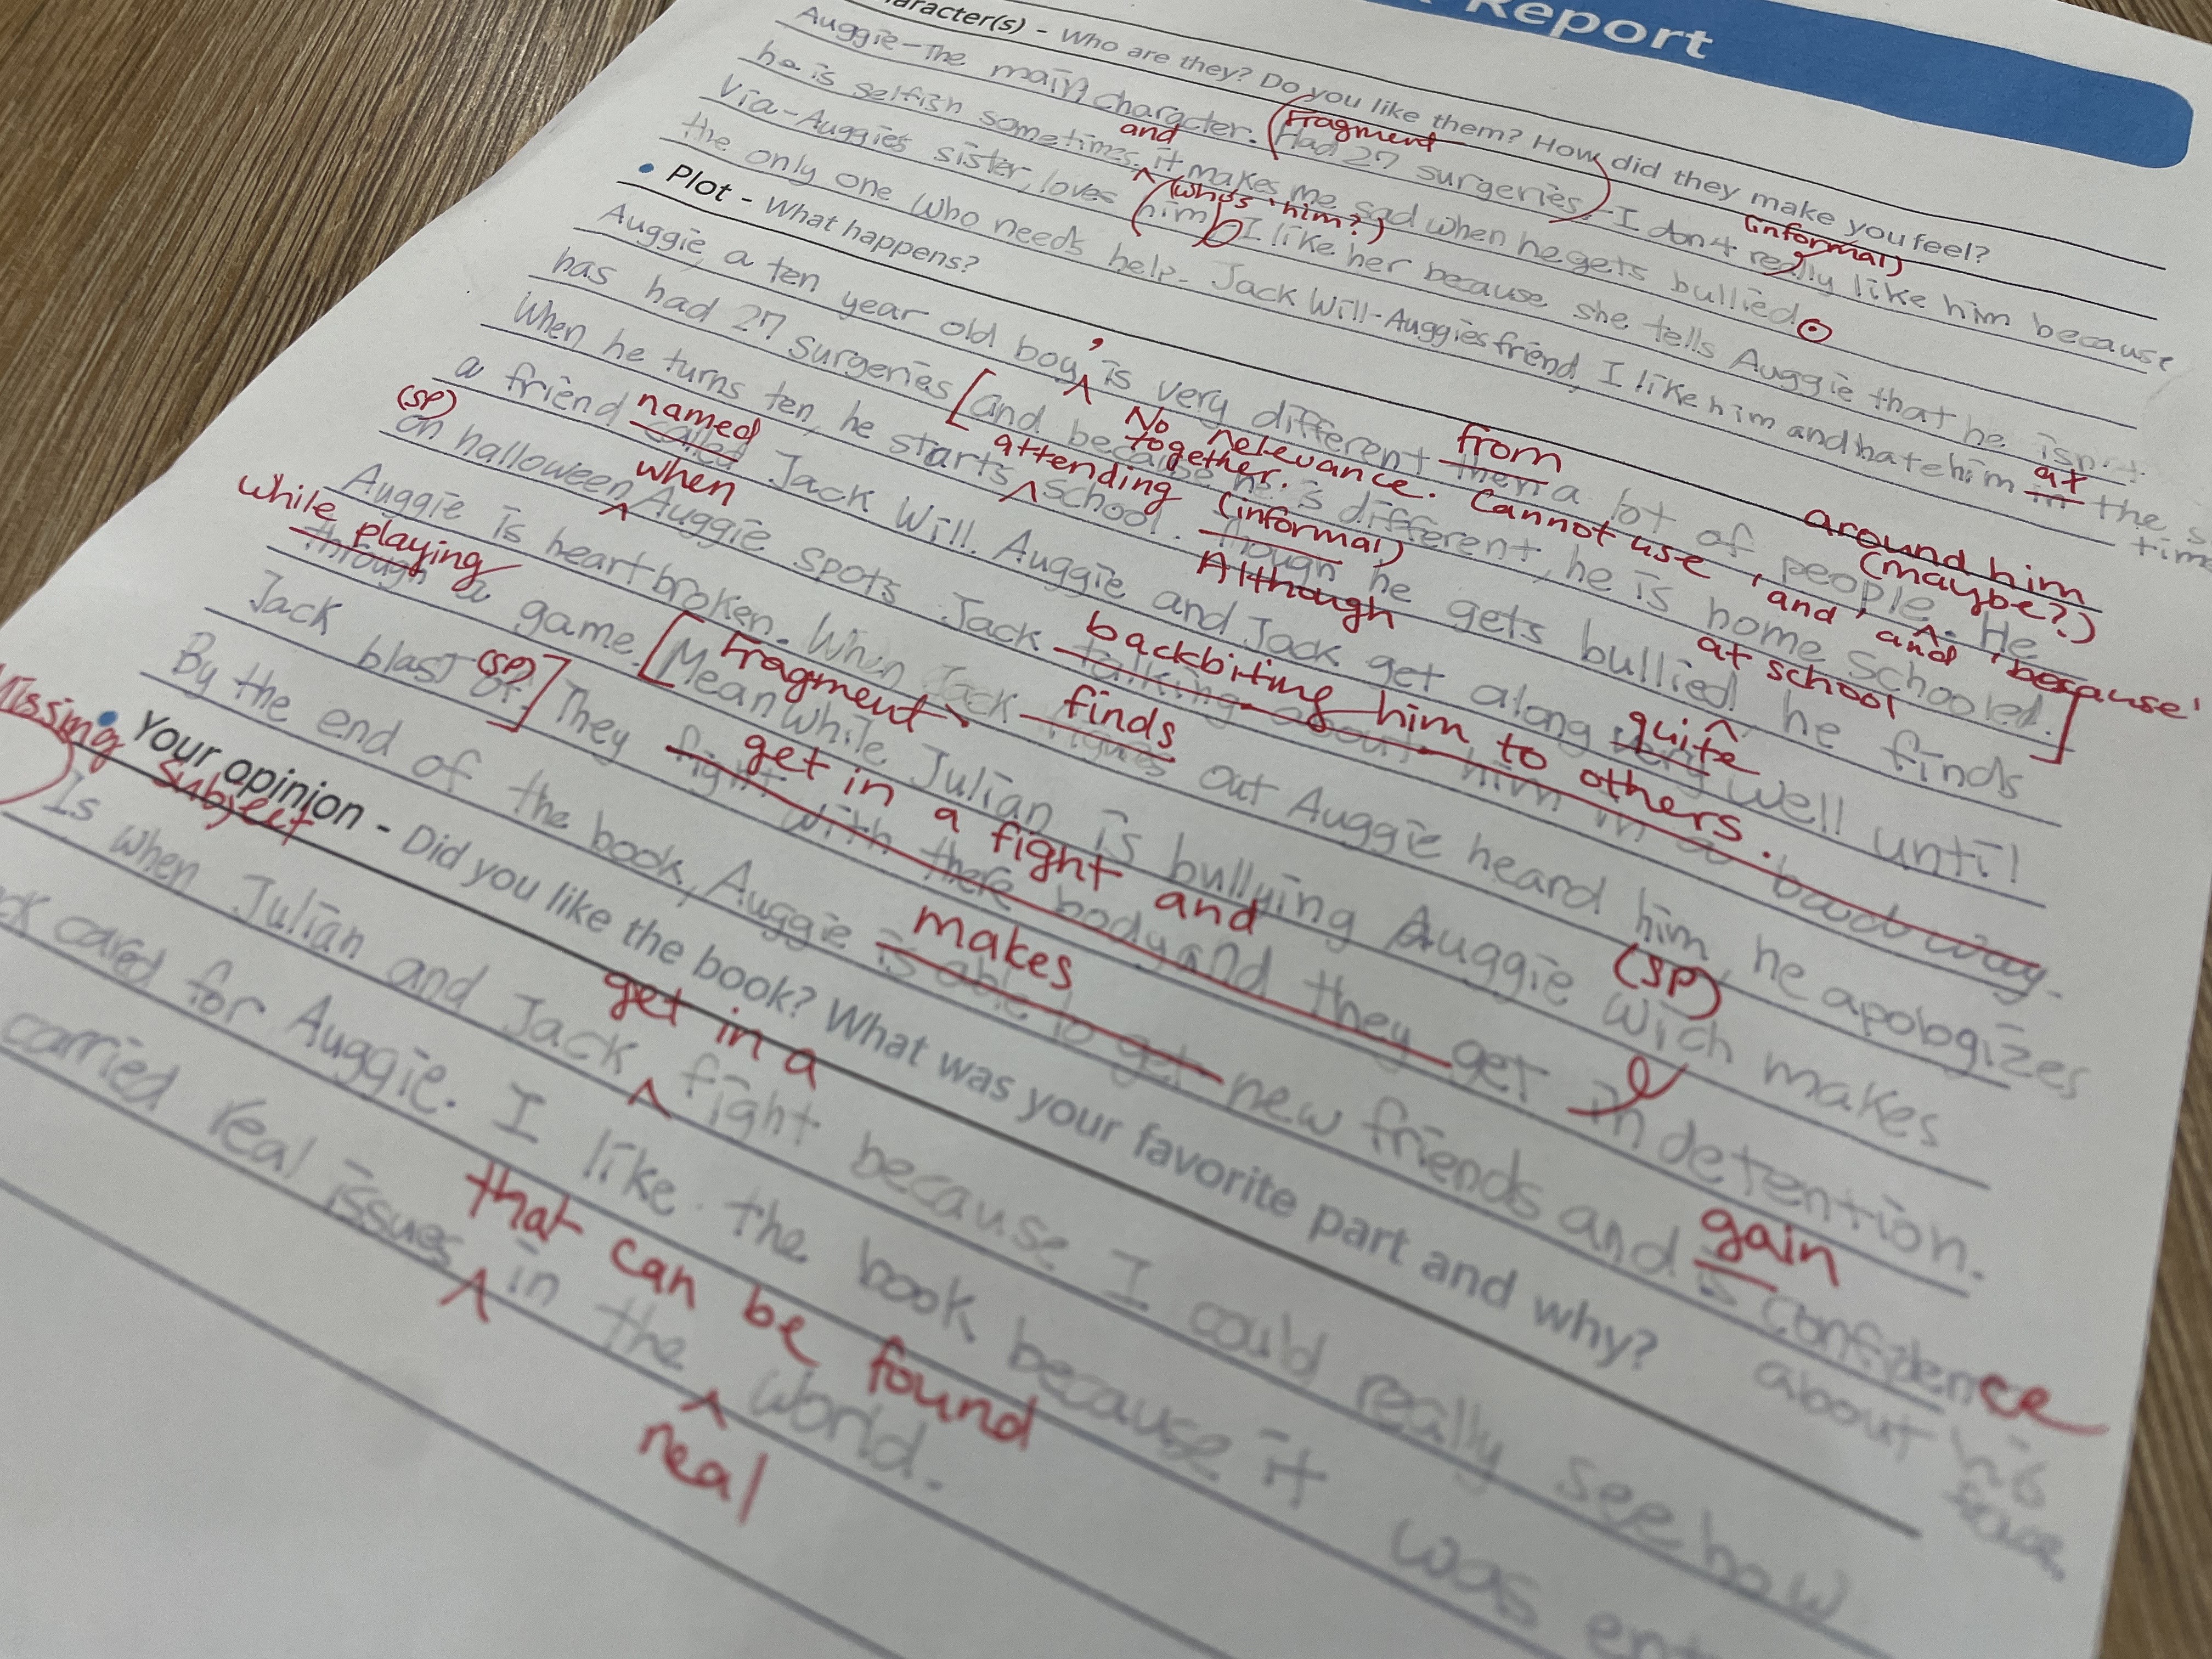 Report
aracter(s) - Who are they? Do you like them? How did they make you feel?
Auggie-The main character. Had 27 surgeries. I don't really like him because
Fragment
(informal)
he is selfish sometimes. it makes me sad when he gets bullied
and
Via-Auggies sister, loves him I like her because she tells Auggie that he isn't
(who's 'him'?)
the only one who needs help. Jack Will-Auggies friend, I like him and hate him in the s
at
time
• Plot - What happens?
Auggie, a ten year old boy is very different then a lot of people. He
,
from
around him
(maybe?)
has had 27 surgeries [and because he is different, he is home schooled.]
No relevance. Cannot use 'and' and 'because'
together.
When he turns ten, he starts school. Though he gets bullied he finds
attending
(informal)
Although
at school
a friend called Jack Will. Auggie and Jack get along very well until
named
quite
(sp)
on halloween Auggie spots Jack talking about him in a bad way.
when
backbiting him to others.
Auggie is heart broken. When Jack figures out Auggie heard him, he apologizes
while playing
finds
through a game. [Meanwhile Julian is bullying Auggie wich makes
Fragment
,
(sp)
Jack blast of.] They fight with there body and they get in detention.
(sp)
get in a fight and
By the end of the book, Auggie is able to get new friends and is confidence
makes
gain
about his
face,
• Your opinion - Did you like the book? What was your favorite part and why?
Missing
subject
Is when Julian and Jack fight because I could really see how
get in a
ck cared for Auggie. I like the book because it was ent
carried real issues in the world.
that can be found
real